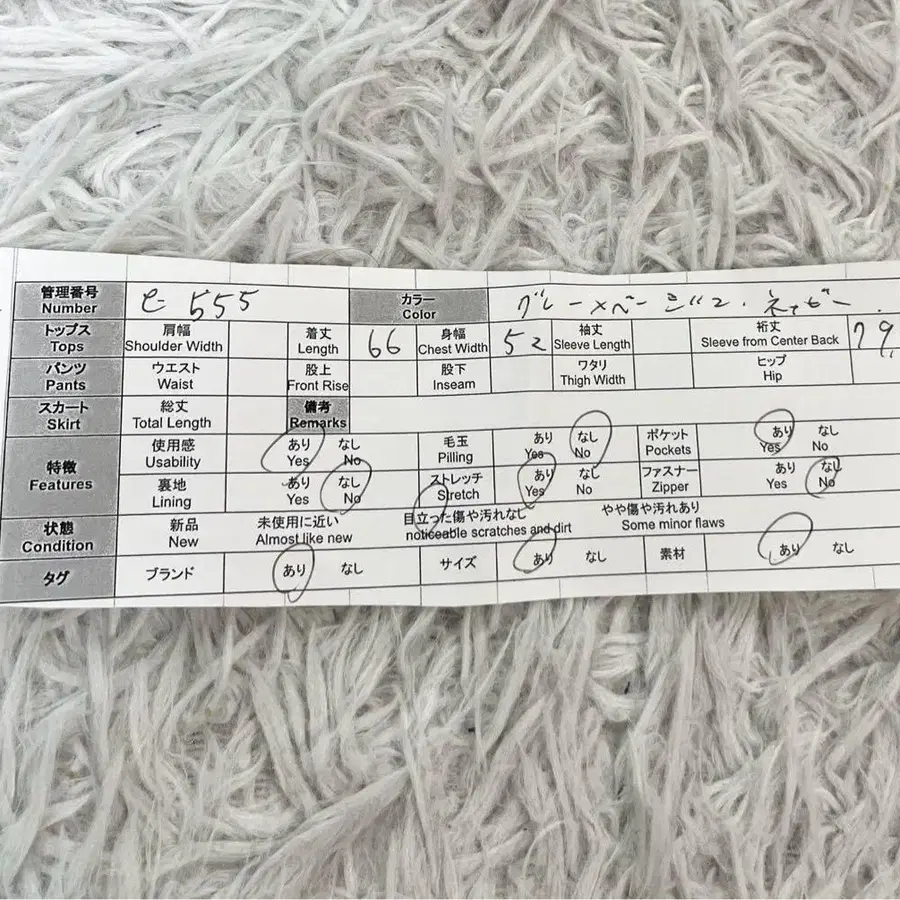 管理番号 Number ヒ-555 カラー Color グレー×ベージュ・ネイビー
トップス Tops 肩幅 Shoulder Width 着丈 Length 66 身幅 Chest Width 52 袖丈 Sleeve Length 裄丈 Sleeve from Center Back 79
パンツ Pants ウエスト Waist 股上 Front Rise 股下 Inseam ワタリ Thigh Width ヒップ Hip
スカート Skirt 総丈 Total Length 備考 Remarks
特徴 Features 使用感 Usability あり Yes なし No 毛玉 Pilling あり Yes なし No ポケット Pockets あり Yes なし No
裏地 Lining あり Yes なし No ストレッチ Stretch あり Yes なし No ファスナー Zipper あり Yes なし No
状態 Condition 新品 New 未使用に近い Almost like new 目立った傷や汚れなし noticeable scratches and dirt やや傷や汚れあり Some minor flaws
タグ ブランド あり なし サイズ あり なし 素材 あり なし